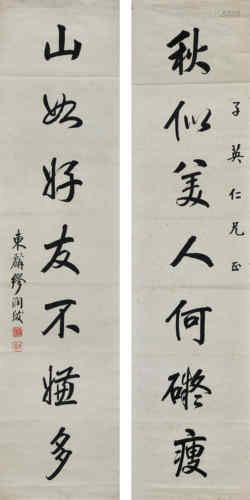 秋似美人何礙瘦
子英仁兄正
山如好友不嫌多
東麟繆潤紱